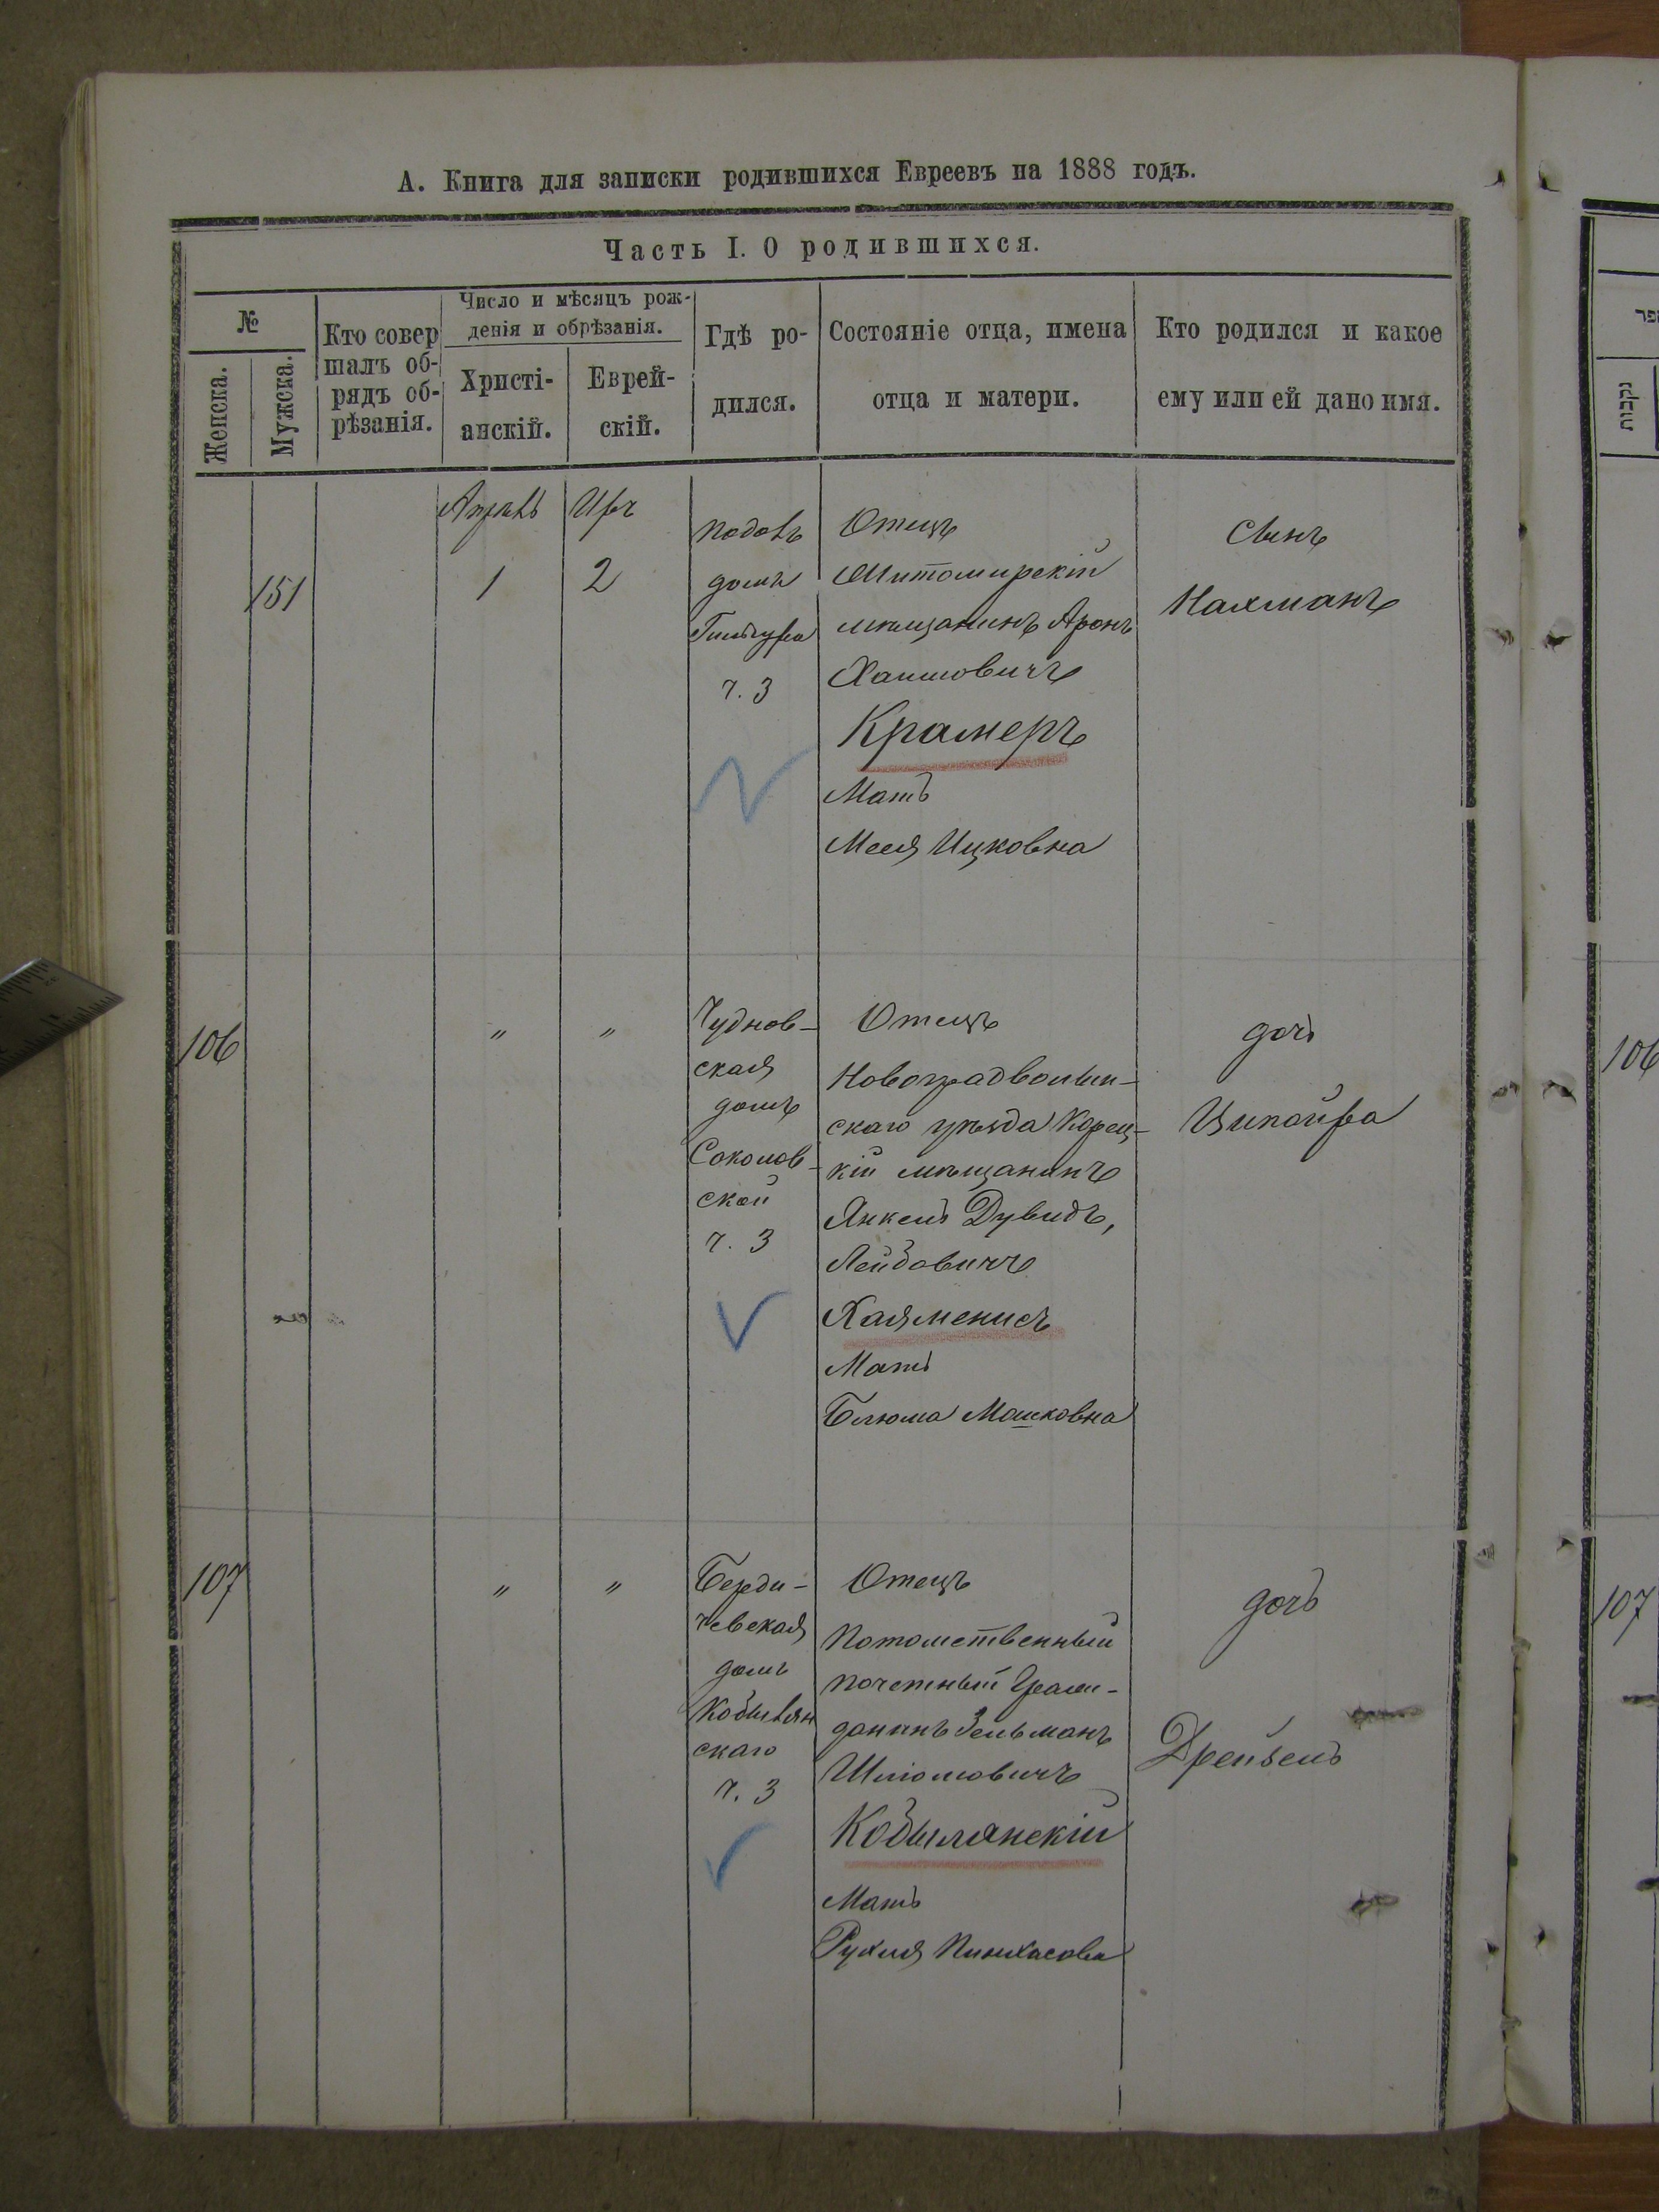 А. Книга для записки родившихся Евреевъ на 1888 годъ.
Часть I. О родившихся.
№
Женска.
Мужска.
Кто совер
шалъ об-
рядъ об-
рѣзанія.
Число и мѣсяцъ рож-
денія и обрѣзанія.
Христі-
анскій.
Еврей-
скій.
Гдѣ ро-
дился.
Состояніе отца, имена
отца и матери.
Кто родился и какое
ему или ей дано имя.
151
Апрѣль
1
Ира
2
домъ
ч. 3
Отецъ
Житомирскій
мѣщанинъ Аронъ
Хаимовичъ
Крамеръ
Мать
Меея Ицковна
Сынъ
Нахманъ
106
"
"
Чуднов-
ская
домъ
Соколов-
ской
ч. 3
Отецъ
Новоградволын-
скаго уѣзда Корец-
кій мѣщанинъ
Янкель Дувидъ,
Лейбовичъ
Хаяменисъ
Мать
Блюма Мошковна
дочь
Ципойра
107
"
"
Берди-
чевская
домъ
Кобылян
скаго
ч. 3
Отецъ
Потомственный
почетный Граж-
данинъ Зельманъ
Шліомовичъ
Кобылянскій
Мать
Рухля Пинхасовна
дочь
Дрейзель
נקבות
106
107